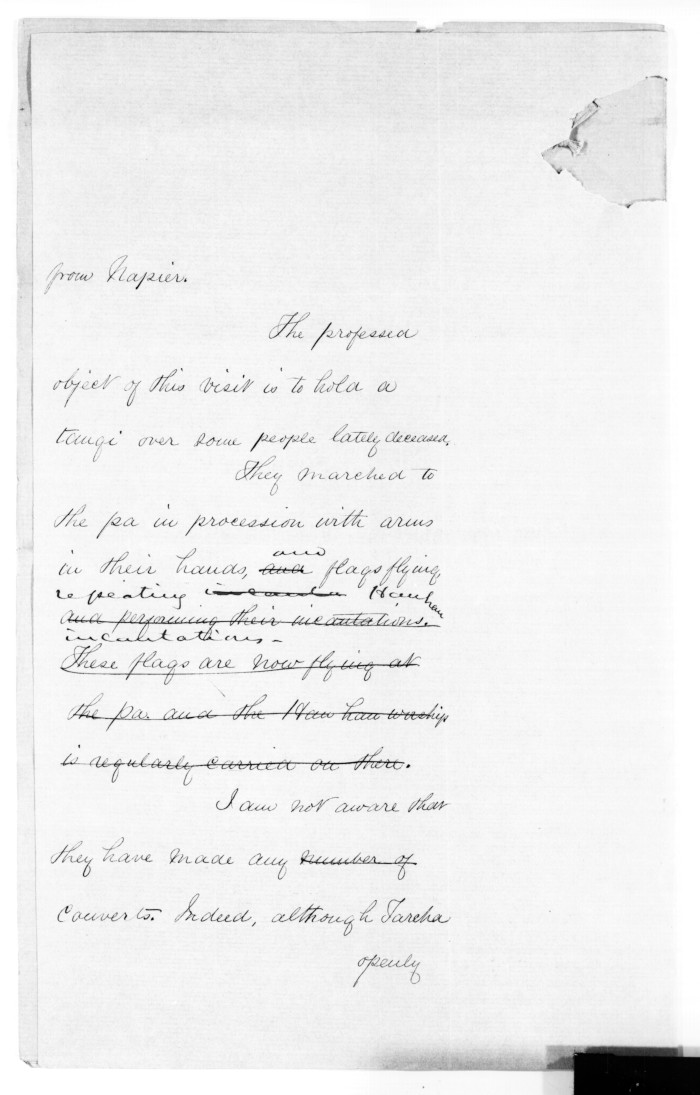 from Napier.
The professed
object of this visit is to hold a
tangi over some people lately deceased.
They marched to
the pa in procession with arms
and
in their hands, and flags flying,
repeating incanta Hauhau
and performing their incantations.
incantations -
These flags are now flying at
the pa. and the Hau hau worship
is regularly carried on there.
I am not aware that
they have made any number of
converts. Indeed, although Tareha
openly